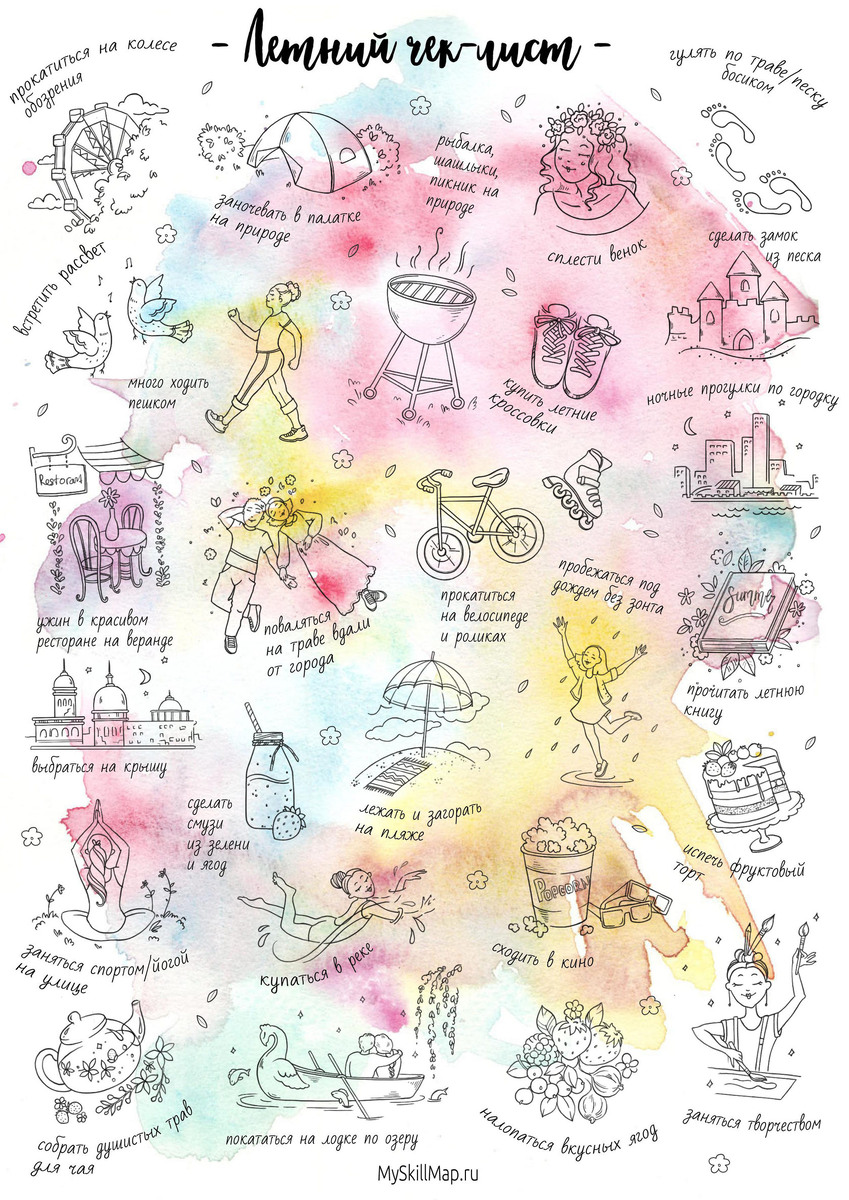 - Летний чек-лист -
прокатиться на колесе
обозрения
гулять по траве/песку
босиком
заночевать в палатке
на природе
рыбалка,
шашлыки,
пикник на
природе
сплести венок
сделать замок
из песка
встретить рассвет
много ходить
пешком
купить летние
кроссовки
ночные прогулки по городку
Restoran
ужин в красивом
ресторане на веранде
поваляться
на траве вдали
от города
прокатиться
на велосипеде
и роликах
пробежаться под
дождем без зонта
Summer
прочитать летнюю
книгу
выбраться на крышу
сделать
смузи
из зелени
и ягод
лежать и загорать
на пляже
испечь фруктовый
торт
заняться спортом/йогой
на улице
купаться в реке
POPCORN
сходить в кино
собрать душистых трав
для чая
покататься на лодке по озеру
налопаться вкусных ягод
заняться творчеством
MySkillMap.ru